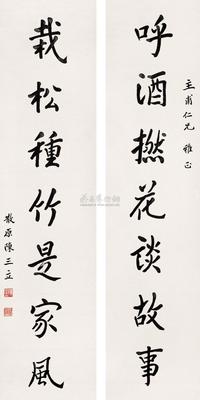 圭甫仁兄 雅正
呼酒撚花談故事
栽松種竹是家風
散原陳三立